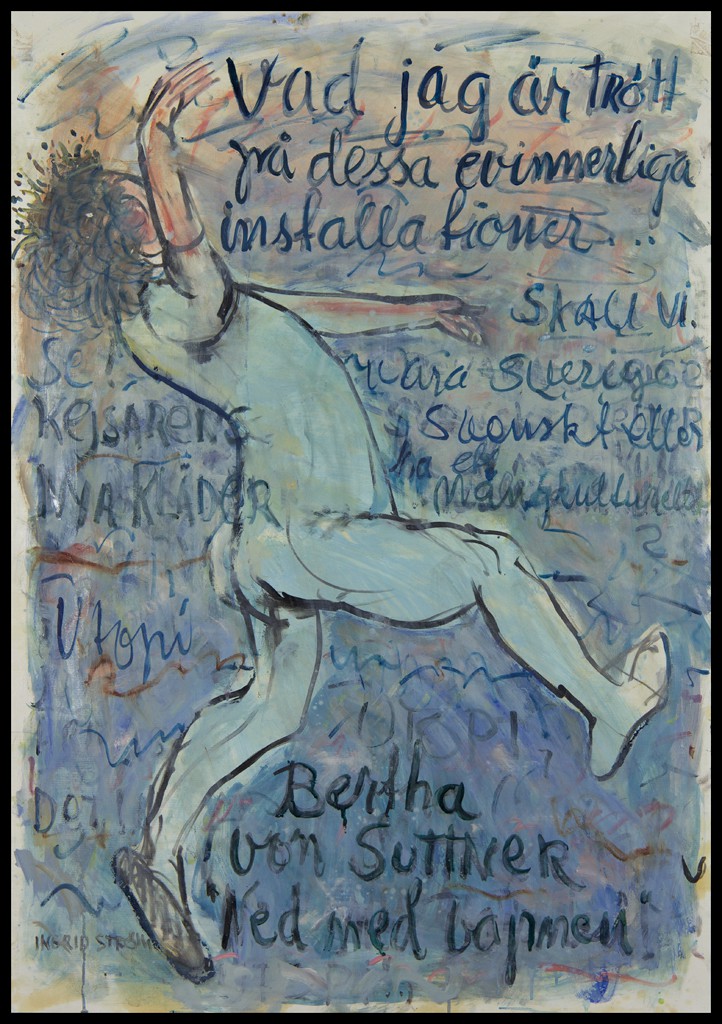 Vad jag är trött
på dessa evinnerliga
installationer...
Skall vi
vara Sverige
Svenskt eller
ha ett
mångkulturellt
Se!
Kejsarens
nya kläder
Utopi
UTOPI
Bertha
von Suttner
"Ned med vapnen"
INGRID